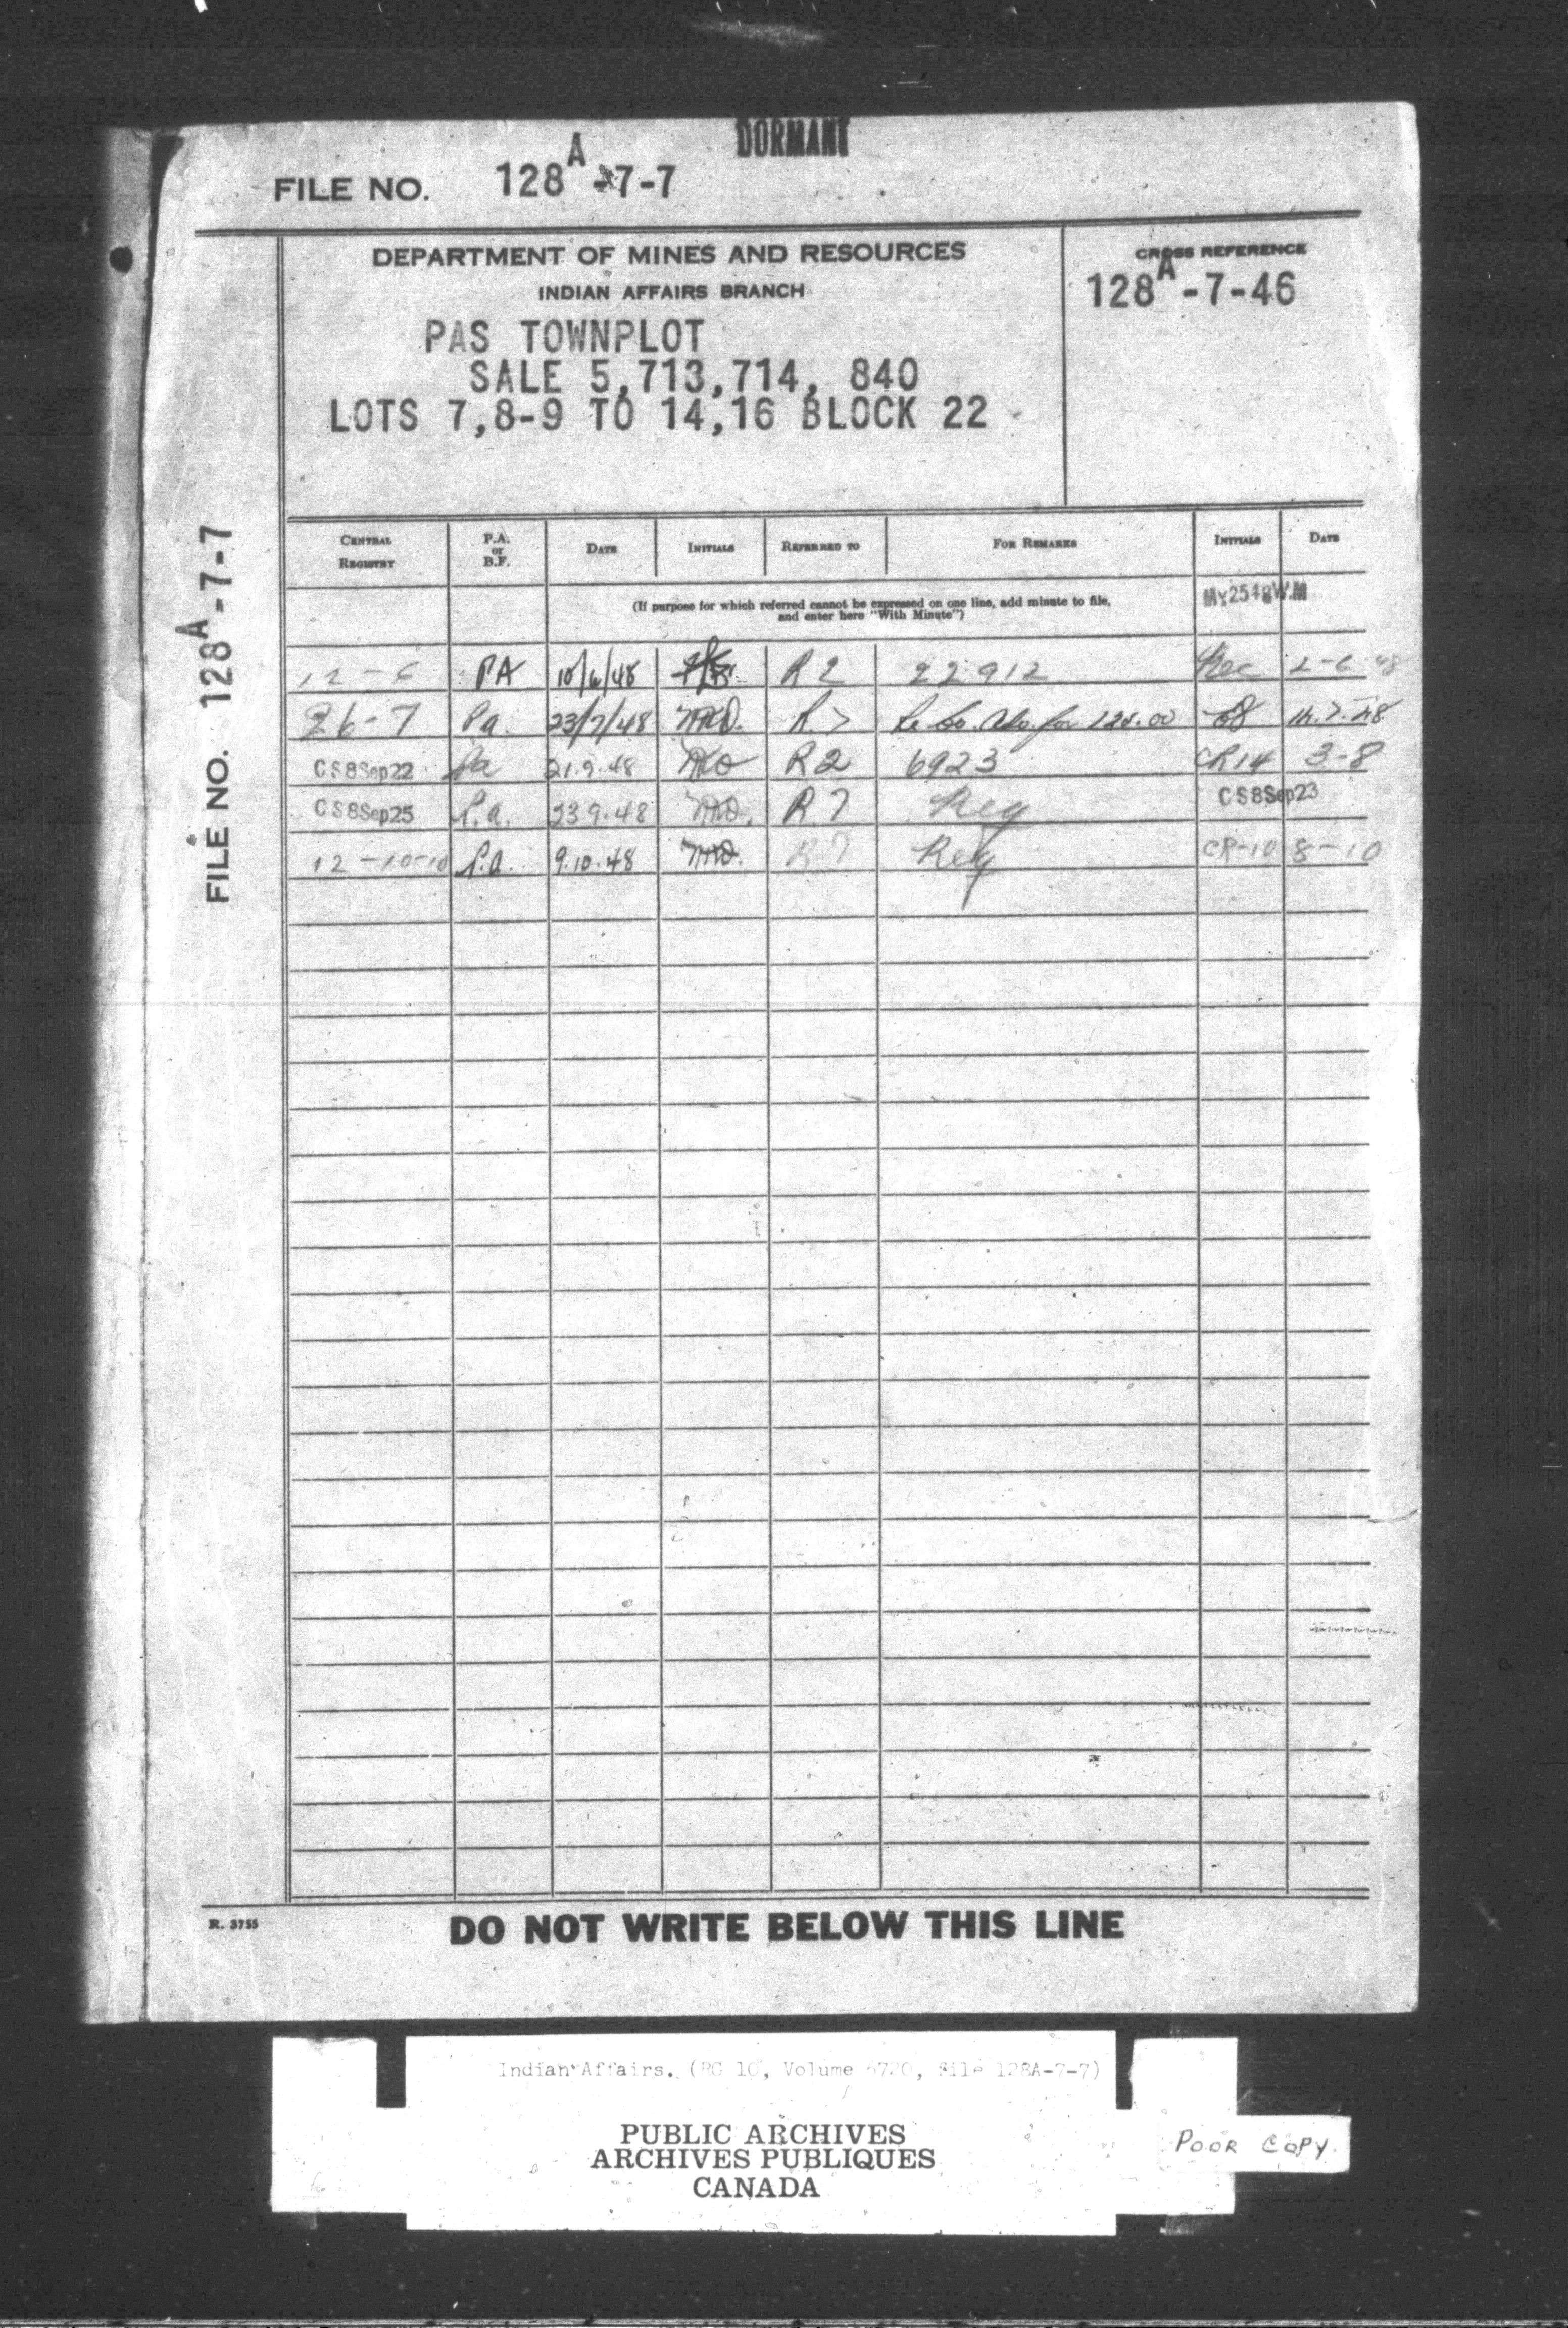 DORMANT
FILE NO. 128A-7-7
DEPARTMENT OF MINES AND RESOURCES
INDIAN AFFAIRS BRANCH
PAS TOWNPLOT
SALE 5,713,714, 840
LOTS 7,8-9 TO 14,16 BLOCK 22
CROSS REFERENCE
128A-7-46
FILE NO. 128A-7-7
CENTRAL REGISTRY P.A. or B.F. DATE INITIALS REFERRED TO FOR REMARKS INITIALS DATE
(If purpose for which referred cannot be expressed on one line, add minute to file,
and enter here "With Minute")
My2548W.M
12-6 PA 10/6/48 R2 22912 2-6-48
26-7 Pa. 23/7/48 R.7 for 125.00 14.7.48
CS8Sep22 Pa 21.9.48 R2 6923 CR14 3-8
CS8Sep25 P.a. 23 9.48 R7 Reg CS8Sep23
12-10-10 P.a. 9.10.48 R7 Reg CR-10 8-10
R. 3755
DO NOT WRITE BELOW THIS LINE
Indian Affairs. (RG 10, Volume 6720, file 128A-7-7)
PUBLIC ARCHIVES
ARCHIVES PUBLIQUES
CANADA
POOR COPY